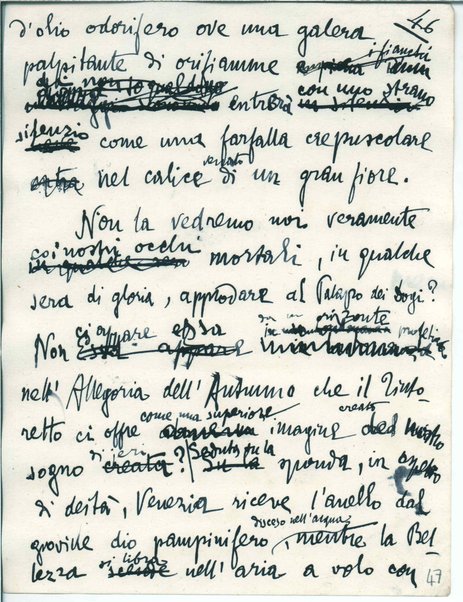 46
d'olio odorifero ove una galera
palpitante di orifiamme i fianchi
con uno strano
entrerà
silenzio come una farfalla crepuscolare
nel calice versato di un gran fiore.
Non la vedremo noi veramente
coi nostri occhi mortali, in qualche
sera di gloria, approdare al Palazzo dei Dogi?
Non ci appare essa da un orizzonte profetico
nell'Allegoria dell'Autunno che il Tinto-
retto ci offre come una superiore imagine creata del nostro
sogno di jeri? Seduta su la sponda, in aspetto
di deità, Venezia riceve l'anello dal
giovine dio pampinifero, disceso nell'acqua, mentre la Bel-
lezza si libra nell'aria a volo con
47